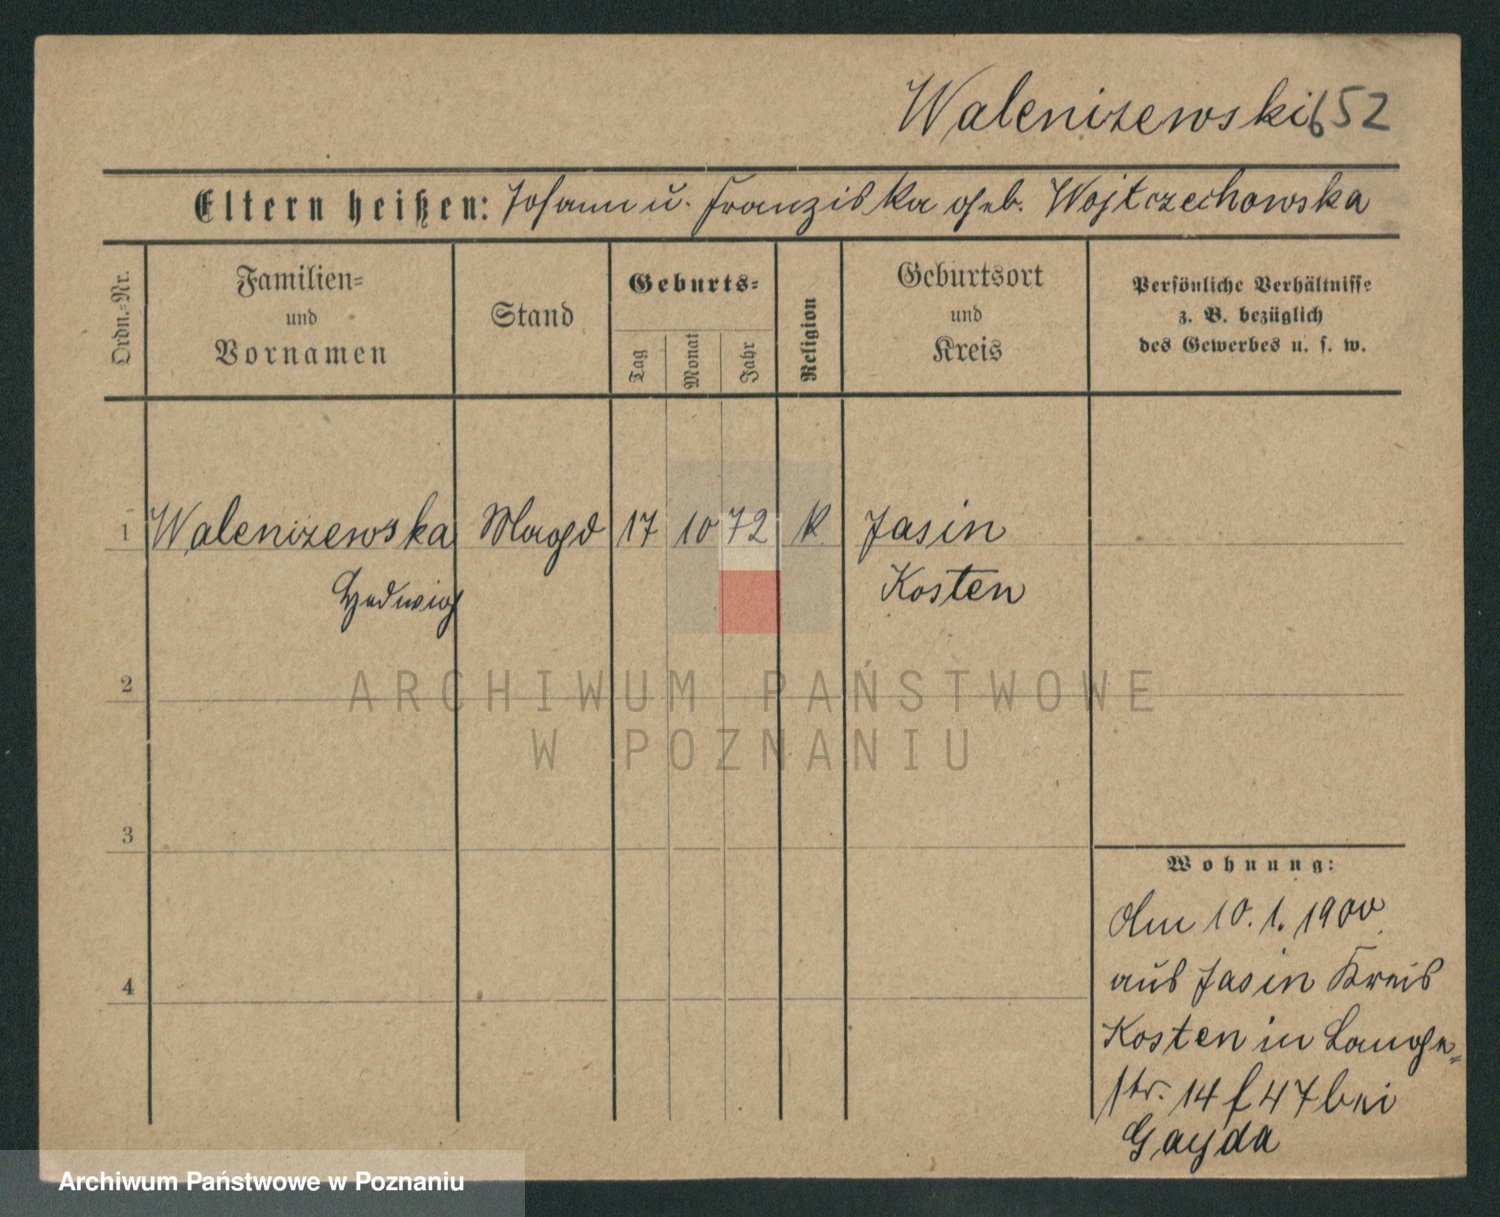 Walenizewski 652
Eltern heißen: Johann u. Franziska geb. Wojtczechowska
Ordn.-Nr.
Familien-
und
Vornamen
Stand
Geburts-
Tag
Monat
Jahr
Religion
Geburtsort
und
Kreis
Persönliche Verhältnisse
z. B. bezüglich
des Gewerbes u. s. w.
1 Walenizewska Magd 17 10 72 k. Jasin
Hedwig Kosten
2
ARCHIWUM PAŃSTWOWE
W POZNANIU
3
Wohnung:
Am 10. 1. 1900.
aus Jasin Kreis
4
Kosten in Lange-
str. 14 f 47 bei
Gayda
Archiwum Państwowe w Poznaniu